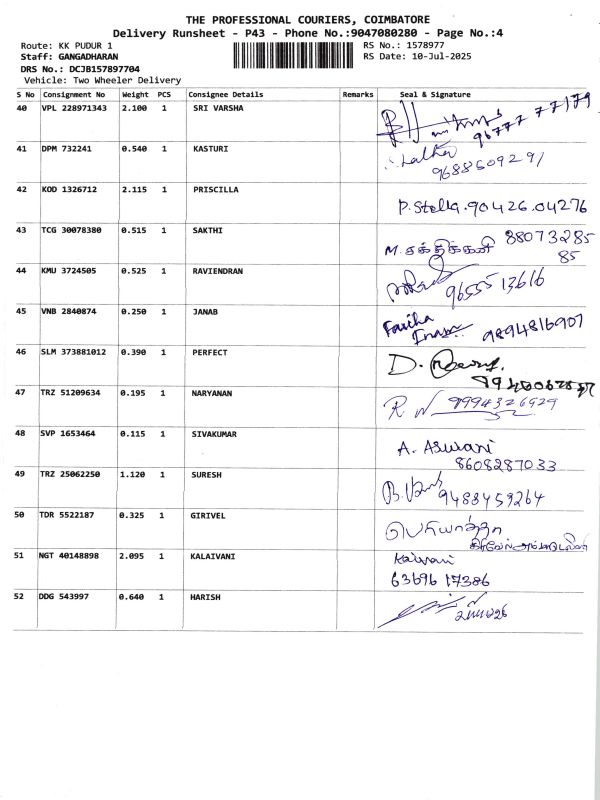 THE PROFESSIONAL COURIERS, COIMBATORE
Delivery Runsheet - P43 - Phone No.:9047080280 - Page No.:4
Route: KK PUDUR 1 RS No.: 1578977
Staff: GANGADHARAN RS Date: 10-Jul-2025
DRS No.: DCJB157897704
Vehicle: Two Wheeler Delivery
S No Consignment No Weight PCS Consignee Details Remarks Seal & Signature
40 VPL 228971343 2.100 1 SRI VARSHA
96777 77179
41 DPM 732241 0.540 1 KASTURI
9688509291
42 KOD 1326712 2.115 1 PRISCILLA
P. Stella. 90426 04276
43 TCG 30078380 0.515 1 SAKTHI
M. சக்திக்கனி 88073285
85
44 KMU 3724505 0.525 1 RAVIENDRAN
9655513616
45 VNB 2840874 0.250 1 JANAB
Fariha
9894816907
46 SLM 373881012 0.390 1 PERFECT
D.
47 TRZ 51209634 0.195 1 NARYANAN
9994326929
48 SVP 1653464 0.115 1 SIVAKUMAR
A. Aswani
8608287033
49 TRZ 25062250 1.120 1 SURESH
9488459264
50 TDR 5522187 0.325 1 GIRIVEL
51 NGT 40148898 2.095 1 KALAIVANI
63696 17386
52 DDG 543997 0.640 1 HARISH